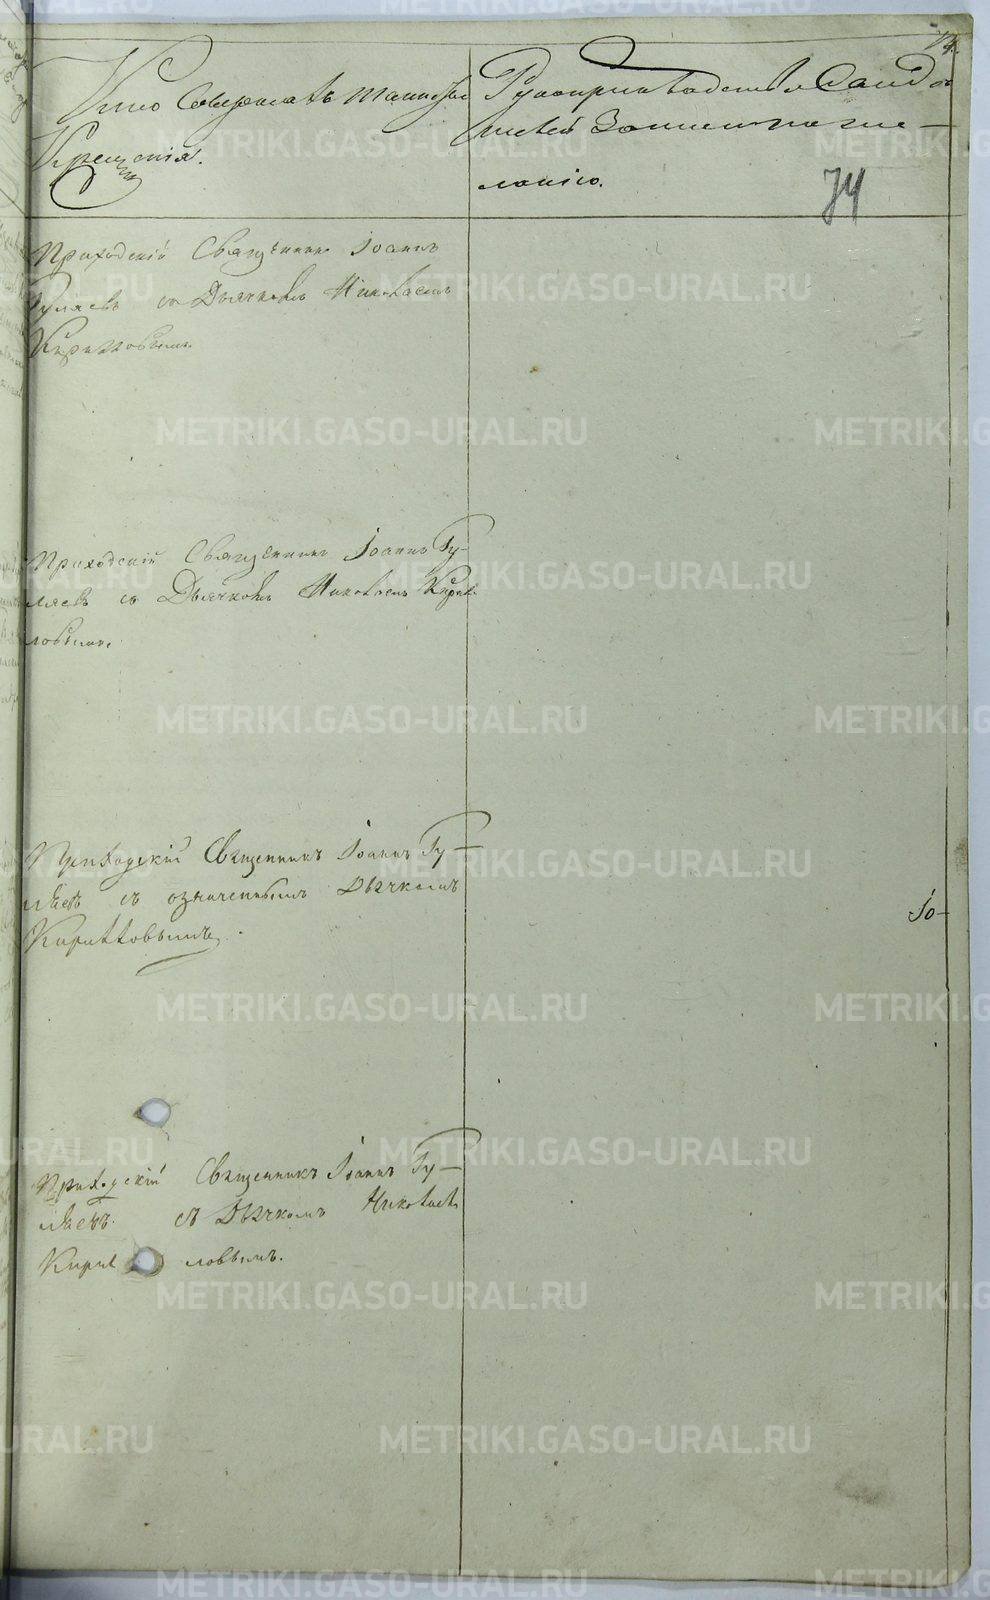 74.
Кто совершалъ таинство
Крещенія.
Рукоприкладство Свидѣ
телей записи по же-
ланію.
74
Приходскій Священникъ Іоаннъ
Гуляевъ съ Дьячкомъ Николаемъ
Кирилловымъ.
Приходскій Священникъ Іоаннъ Гу-
ляевъ съ Дьячкомъ Николаемъ Кирил-
ловымъ.
Приходскій Священникъ Іоаннъ Гу-
ляевъ съ означеннымъ Дьячкомъ
Кирилловымъ.
Іо-
Приходскій Священникъ Іоаннъ Гу-
ляевъ съ Дьячкомъ Николаемъ
Кирил ловымъ.
METRIKI.GASO-URAL.RU